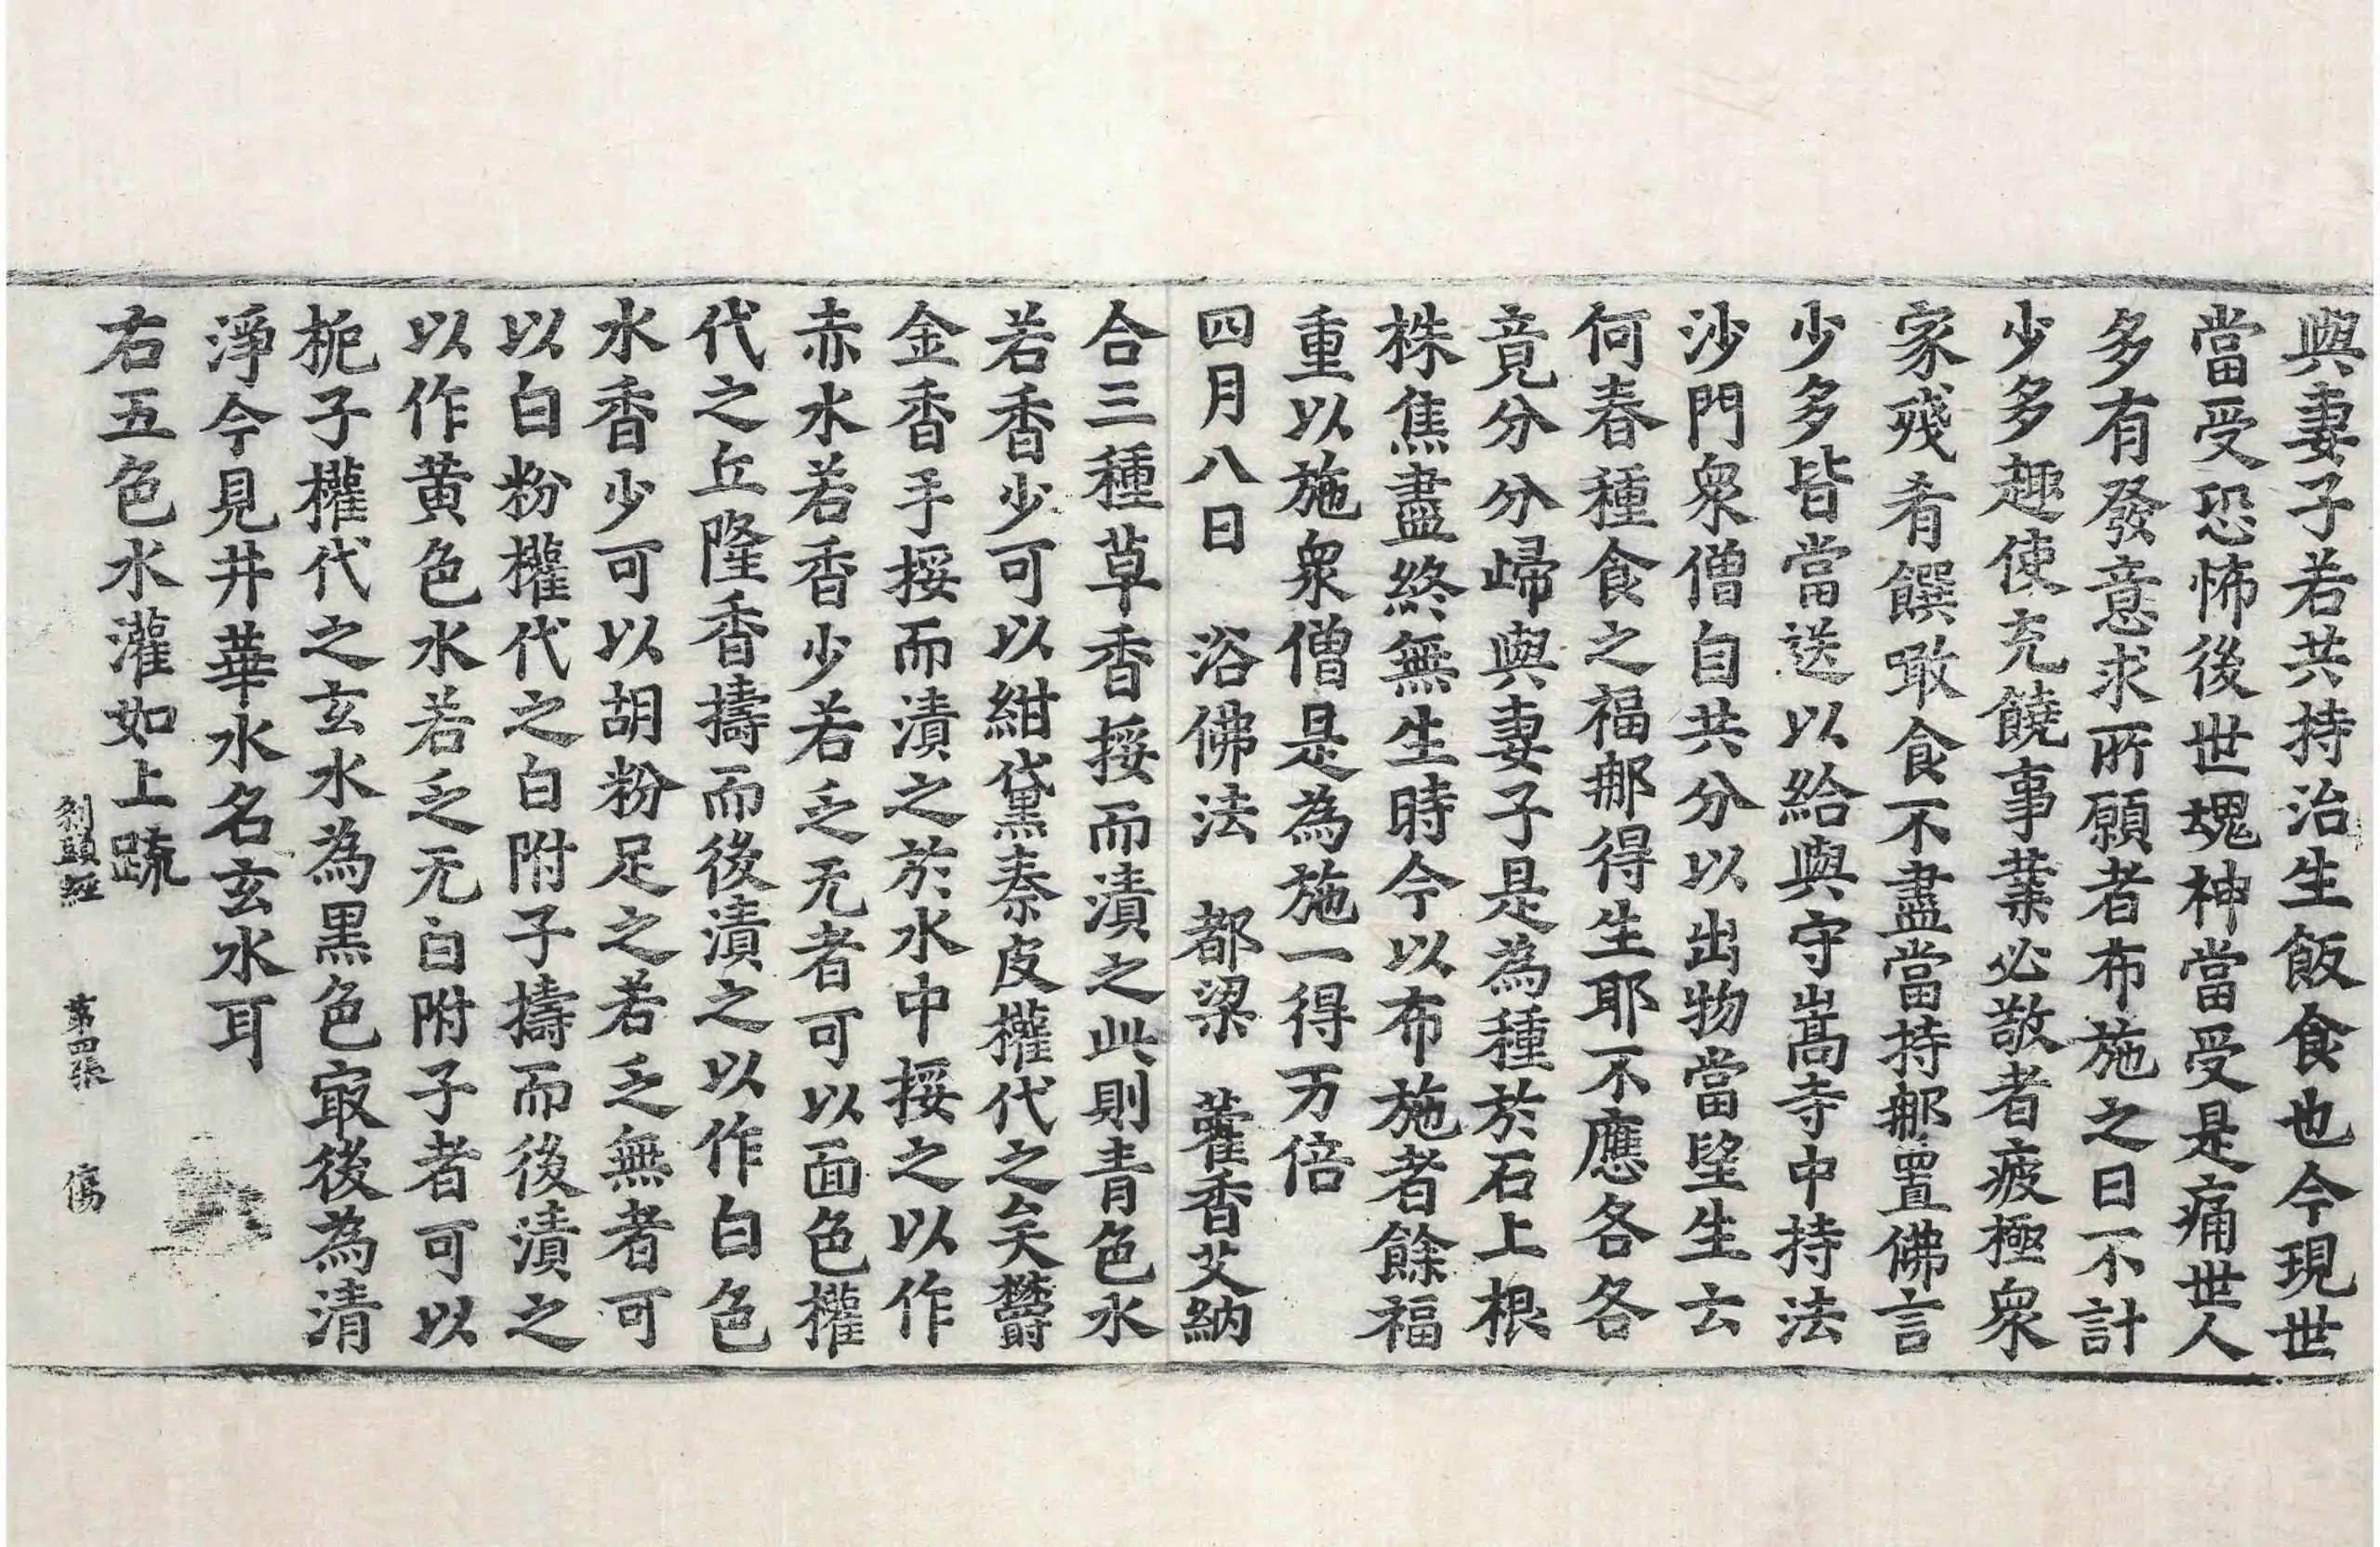 與妻子若共持治生飯食也今現世
當受恐怖後世魂神當受是痛世人
多有發意求所願者布施之日不計
少多趣使充饒事業必敬者疲極衆
家殘肴饌噉食不盡當持郍置佛言
少多皆當送以給與守嵩寺中持法
沙門衆僧自共分以出物當望生云
何春種食之福郍得生耶不應各各
竟分分歸與妻子是為種於石上根
株焦盡終無生時今以布施者餘福
重以施衆僧是為施一得万倍
四月八日 浴佛法 都梁 藿香艾納
合三種草香挼而漬之此則青色水
若香少可以紺黛秦皮權代之矣欝
金香手挼而漬之於水中挼之以作
赤水若香少若乏无者可以面色權
代之丘隆香擣而後漬之以作白色
水香少可以胡粉足之若乏無者可
以白粉權代之白附子擣而後漬之
以作黄色水若乏无白附子者可以
梔子權代之玄水為黒色㝡後為清
淨今見井華水名玄水耳
右五色水灌如上疏
刹頭經 第四張 傷